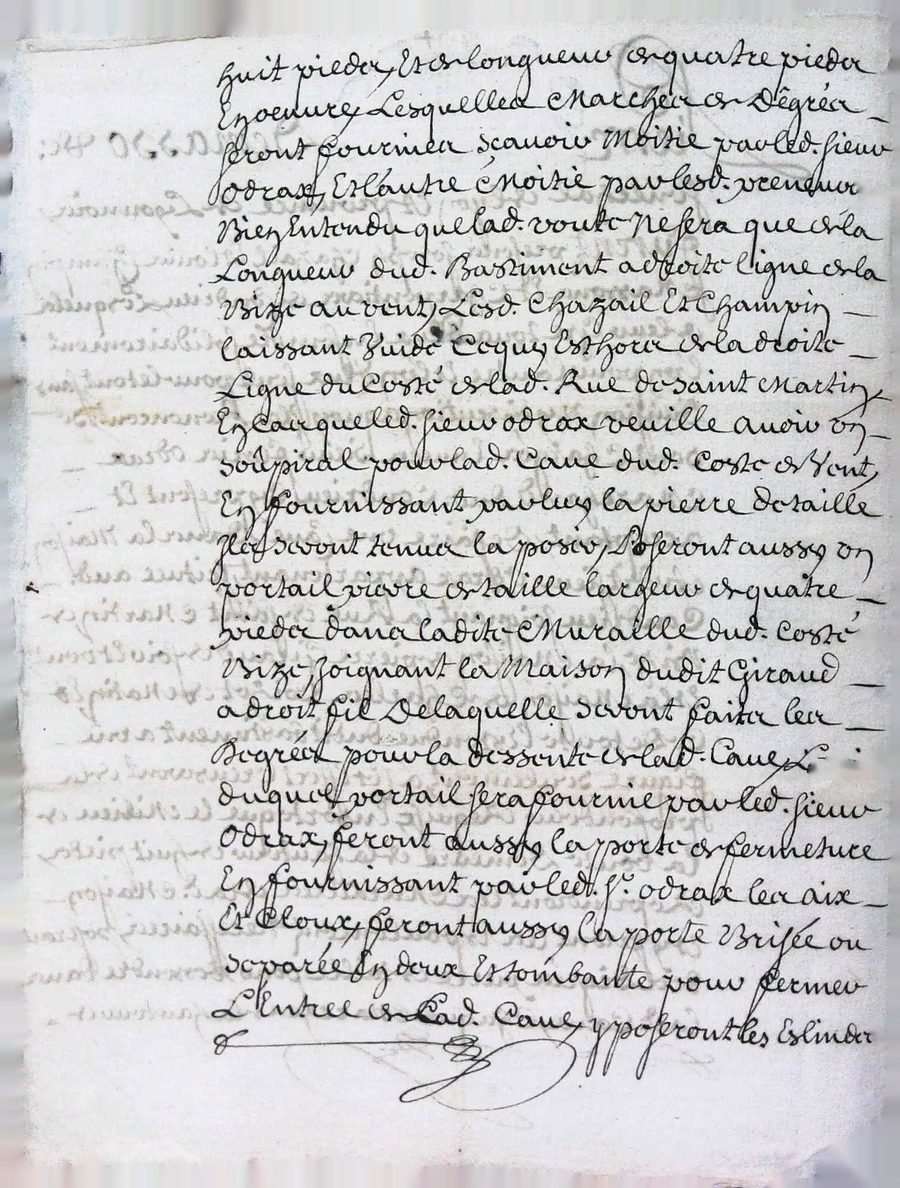 huit pieds, Et de longueur de quatre pieds
En oeuvre, Lesquelles Marches de Dêgrés
seront fournies scavoir Moitie par led. sieur
Odrax, Et l'autre Moitie par lesd. preneurs
Bien Entendu que lad. voute Ne sera que de la
Longueur dud. Bastiment a droite ligne de la
Bize au vent, Lesd. Chazail Et Champin
laissant Vuide Cequy Est hors de la droite
Ligne du Costé de lad. Rue de saint Martin,
En Cas que led. sieur odrax veuille avoir un
soûpiral pour lad. Cave dud. Coste de Vent,
En fournissant par luy la pierre de taille
Ils seront tenus la poser, Poseront aussy un
portail pierre de taille largeur de quatre
pieds dans ladite Muraille dud. Costé
Bize, Joignant la Maison dudit Giraud
a droit fil Delaquelle seront faits les
Degrés pour la dessente de lad. Cave, L
duquel portail sera fournie par led. sieur
Odrax, feront aussy la porte de fermeture
En fournissant par led. sr. odrax les aix
Et Cloux, feront aussy la porte Brisée ou
separée En deux Et tombante pour fermer
L'Entree de Lad. Cave, y poseront les Eslindes